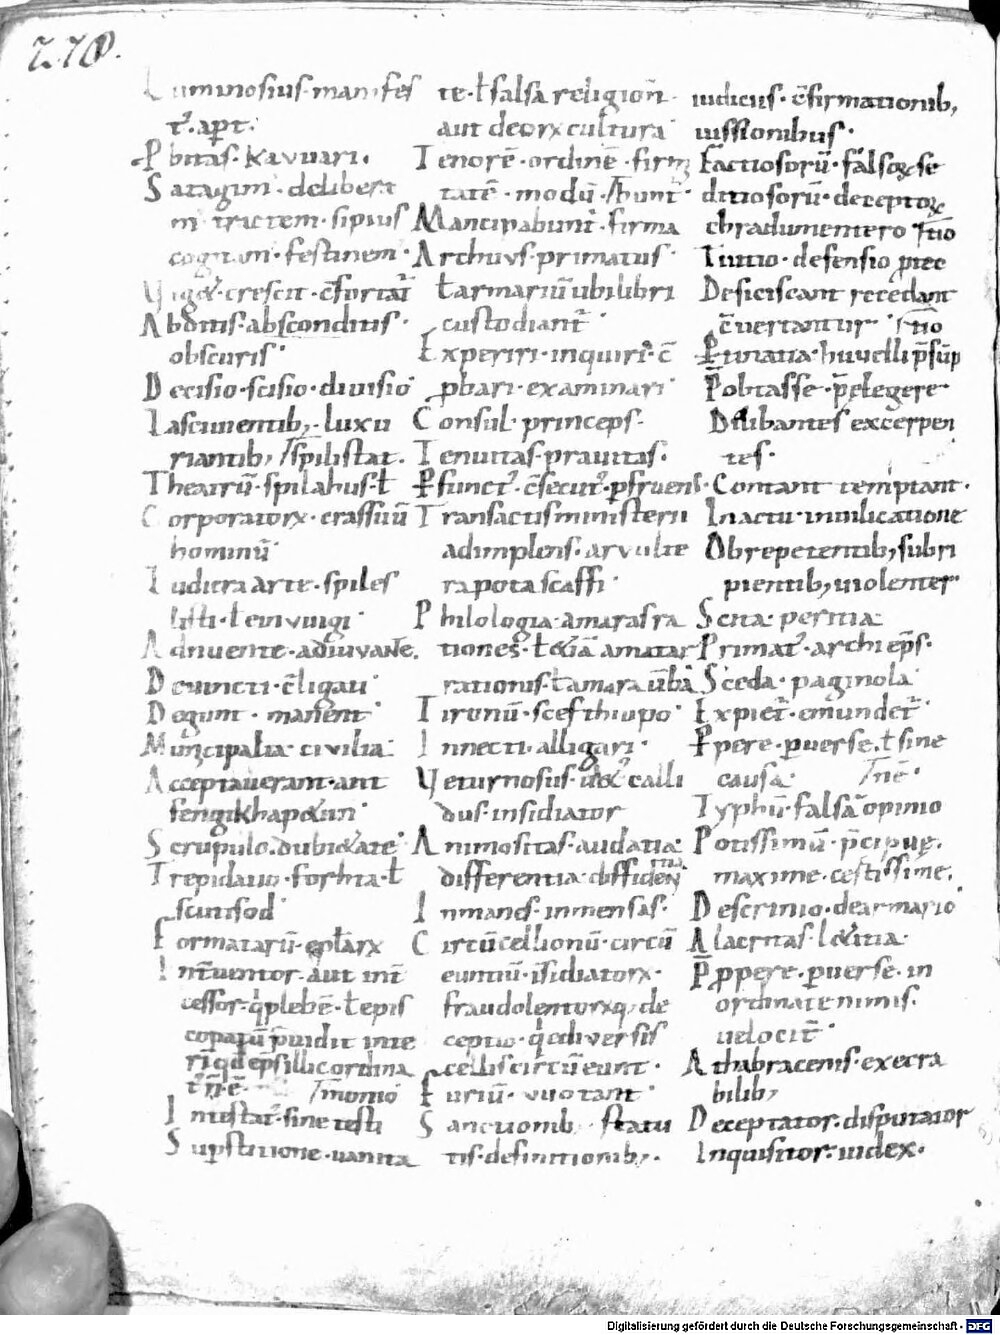 270.
Luminosius · manifes
t᷑ · apt᷑.
Pbitas · kauuari.
Satagim · delibera
m᷑ tractem · sipius
cogitem · festinem ·
Viget · crescit · c̄fortat᷑
Abditis · absconditis ·
obscuris ·
Decisio · scisio · diuisio
Lasciuientib; · luxu
riantib; spilistat.
Theatrū · spilahus · ł
Corporatorꝝ · crassiuū
hominū ·
Ludicra arte · spiles
listi · ł einuuigi
Adnuente · adiuuante.
Deuincti · c̄ligati ·
Degunt · manent ·
Municipalia · civilia ·
Acceptauerant · ant
fengikhapetun ·
Scrupulo · dubietate ·
Trepidatio · forhta · ł
scuntsod ·
Formatarū · eptarꝝ
Int᷑uentor · aut int᷑
cessor · q̇ plebē · ł epis
copatū puidit inte
ri q̇d ep̄s illic ordina
t᷑
Intestat᷑ · sine testi
Supstitione · uanita
te · ł falsa religion̄
aut deorꝝ cultura
Tenorē · ordinē · firmi
tatē · modū ·
Mancipabunt᷑ · firma
Archiuus · primatus ·
ł armariū ubi libri
custodiant᷑ ·
Experiri · inquiri · c̄
ꝓbari · examinari ·
Consul · princeps ·
Tenuitas · prauitas ·
Pfunct᷑ · c̄secut᷑ · pfruens ·
Transactis ministerii
adimplens · ar uulte
rapota scaffi ·
Philologia · amarafra
tiones · ł etiā amatar
rationis · ł amara
Tironū · scefthiupo ·
Innecti · alligari ·
Veturnosus · uet᷑ calli
dus · insidiator
Animositas · audatia
differentia · diffiden
tia
Inmanes · inmensas ·
Circūcellionū · circū
euntiū · īsidiatorꝝ ·
fraudolentorꝝq; de
ceptio · q̇ e diuersis
cellis circūeunt ·
Furiū · uuotant ·
Sanctionib; statu
tis · definitionib; ·
iudicius · c̄firmationib;
iussionibus ·
Factiosorū · falsoꝝ se
ditiosorū · deceptoꝝ
ebradumentero
Tuitio · defensio ꝓtec
Desciscant recedant
c̄uertantur · tio
Piuratia · huuelli p̄sūp
Pobtasse · p̄elegere
Delibantes excerpen
tes ·
Contant temptant ·
In actu · in uilicatione
Obrepetentib; subri
pientib; uiolenter
Scita · peritia ·
Primat᷑ · archi ep̄s ·
Sceda · paginola
Expiet᷑ · emundet᷑
Ppere · puerse · ł sine
causa ·
Typhū · falsa opinio
Potissimū · p̄cipue ·
maxime · certissime ·
Descrinio · dearmario
Alacritas · lętitia ·
Pppere · puerse · in
ordinate nimis ·
uelocit᷑ ·
Athabracenis · execra
bilib;
Deceptator · disputator
Inquisitor · iudex ·
Digitalisierung gefördert durch die Deutsche Forschungsgemeinschaft - DFG